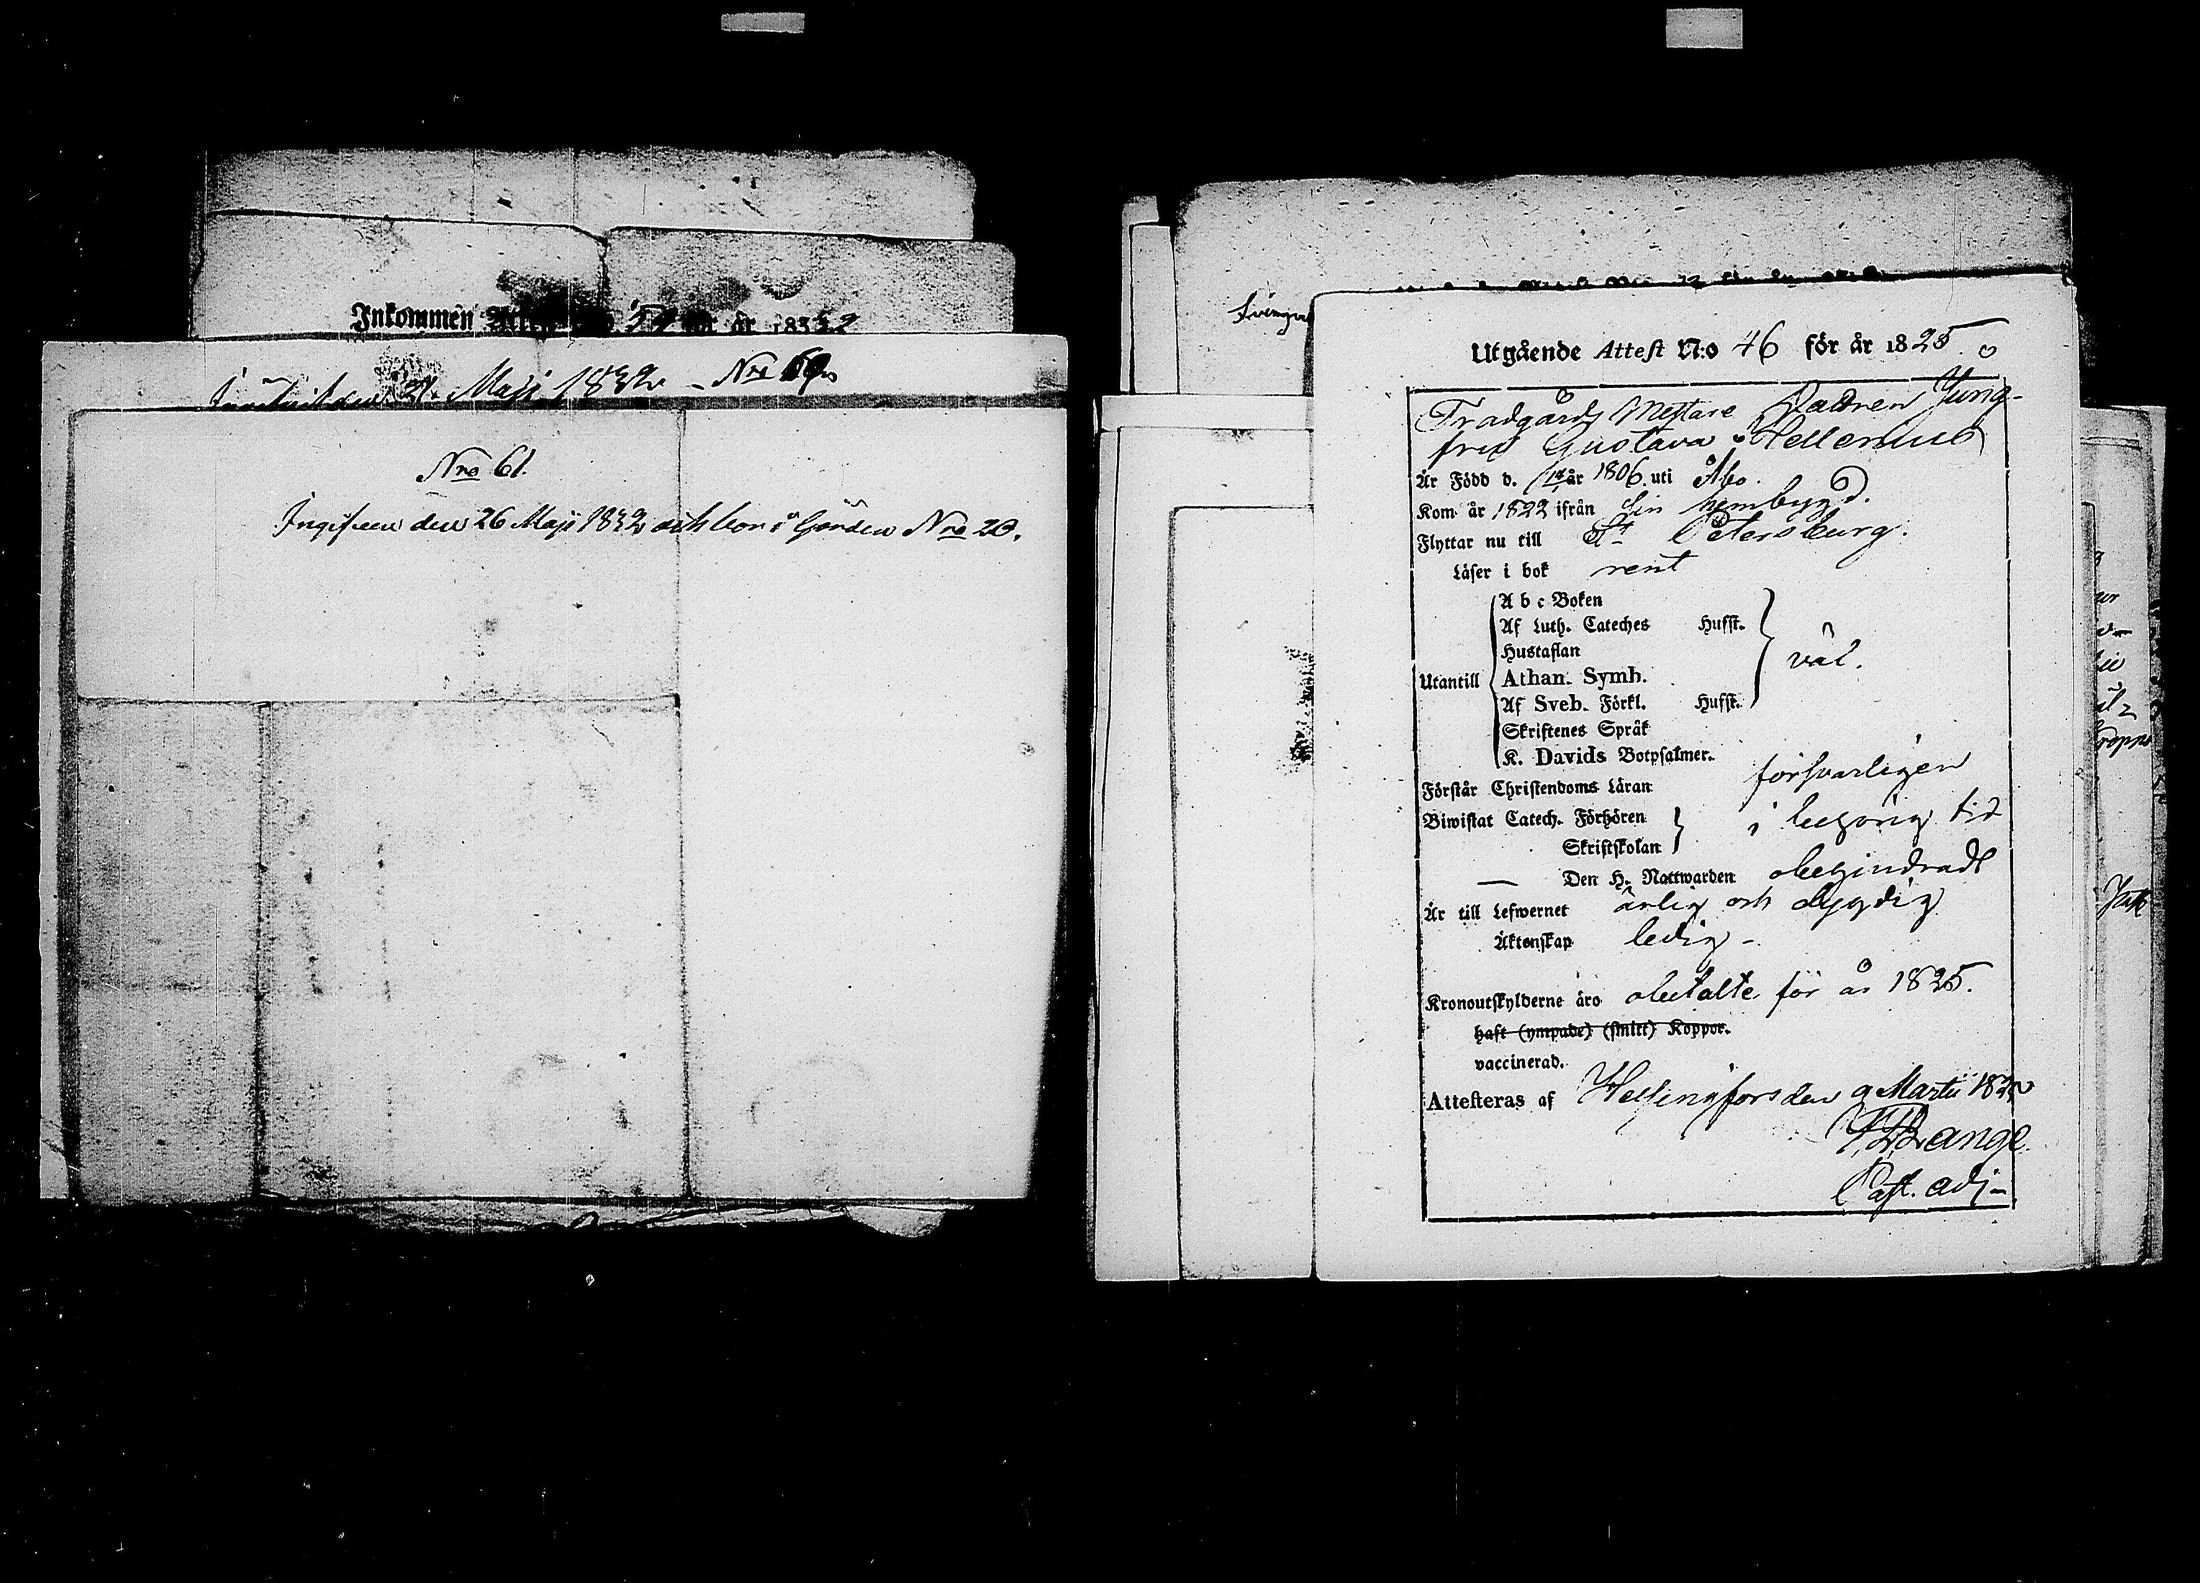 Inkommen Attest N:o 59 för år 1832
den 21. Maji 1832 - Nro 60
Nro 61.
Ingifven den 26 Maji 1832 och bor i Gården Nro 20.
Utgående Attest N:o 46 för år 1825.
Trädgårds Mästare Jung-
fru Gustava Hellenius
Är Född d. år 1806. uti Åbo.
Kom år 1822 ifrån sin hembygd.
Flyttar nu till St Petersburg.
Läser i bok rent
Utantill
A b c Boken
Af Luth. Cateches Hufst.
Hustaflan
Athan. Symb.
Af Sveb. Förkl. Hufst.
Skriftenes Språk
K. Davids Botpsalmer.
väl.
Förstår Christendoms Läran försvarligen
Biwistat Catech. Förhören
Skriftskolan
i behörig tid
— Den H. Nattwarden obehindradt
Är till Lefwernet ärlig och dygdig
Äktenskap ledig -
Kronoutskylderne äro obetalte för år 1825.
haft (ympade) (smitt) Koppor.
vaccinerad.
Attesteras af Helsingfors den 9 Martii
Past. adj-